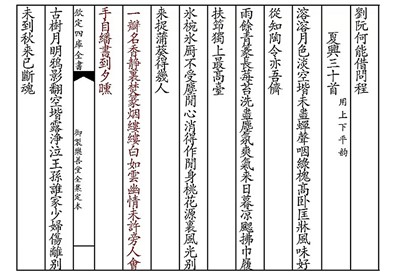 劉阮何能借問程
夏興三十首 用上下平韵
溶溶月色淡空堦未盡蟬聲咽綠槐高卧匡牀風味好
從知陶令亦吾儕
雨餘青裛長莓苔洗盡塵氛爽氣来日暮凉飈拂巾履
扶笻獨上最高臺
氷椀氷厨不受塵閒心消得作閒身桃花源裏風光别
来捉蒲葵得幾人
一瓣名香静裏焚篆烟縷縷白如雲幽情未許旁人會
手自繙書到夕曛
欽定四庫全書
御製樂善堂全集定本
古樹月明鴉影翻空堦露淨泣王孫誰家少婦傷離别
未到秋来已斷魂